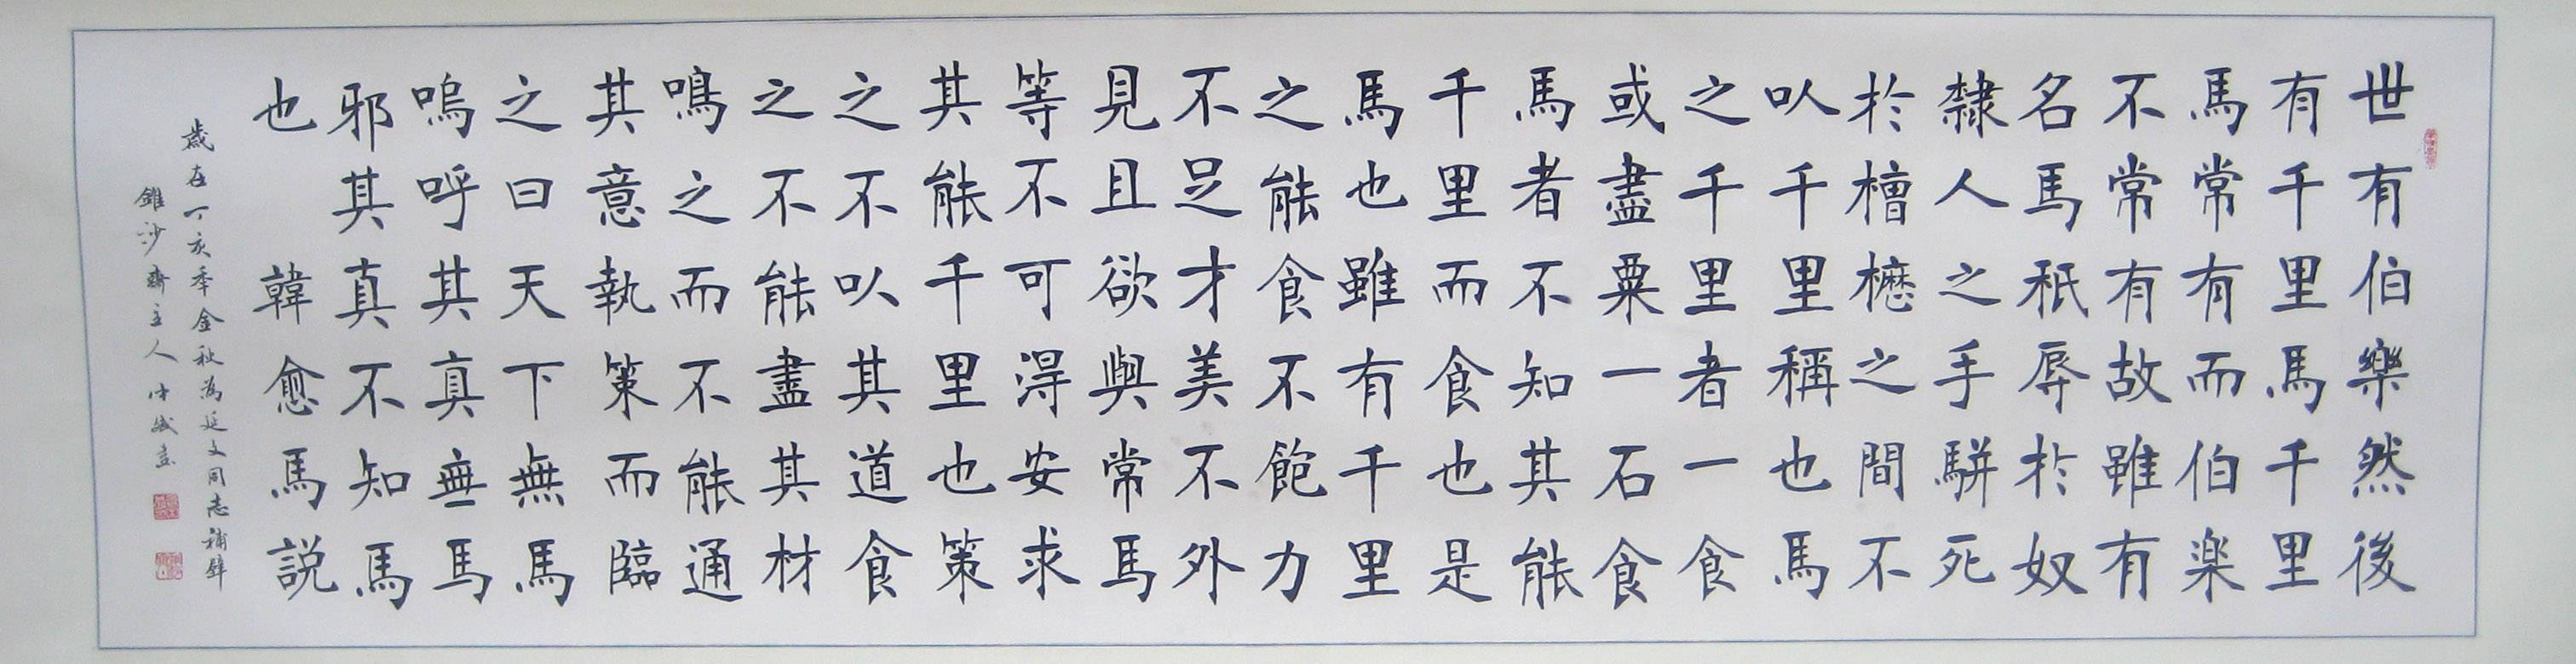 世有伯樂然後
有千里馬千里
馬常有而伯楽
不常有故雖有
名馬秖辱於奴
隸人之手駢死
於槽櫪之間不
以千里稱也馬
之千里者一食
或盡粟一石食
馬者不知其能
千里而食也是
馬也雖有千里
之能食不飽力
不足才美不外
見且欲與常馬
等不可得安求
其能千里也策
之不以其道食
之不能盡其材
鳴之而不能通
其意執策而臨
之曰天下無馬
嗚呼其真無馬
邪其真不知馬
也 韓愈馬説
歲在丁亥年金秋為延文同志補壁
錐沙齋主人